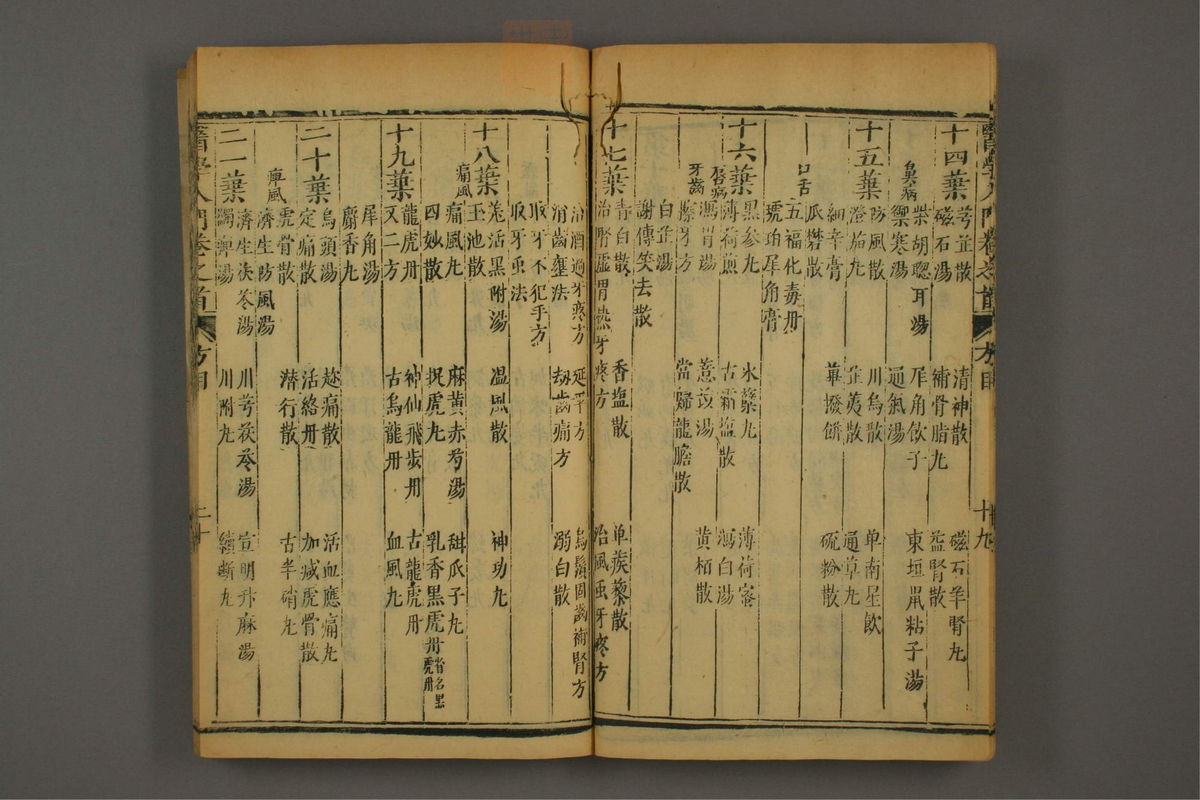 十四葉
芎芷散 清神散 磁石羊腎丸
磁石湯 補骨脂丸 益腎散
柴胡聰耳湯 犀角飲子 東垣鼠粘子湯
鼻病
禦寒湯 通氣湯
十五葉
防風散 川烏散 单南星飲
澄茄丸 芷荑散 通草丸
細辛膏
瓜礬散 蓽撥餅 硫粉散
口舌
五福化毒丹
琥珀犀角膏
十六葉
黑參丸 氷蘗丸 薄荷蜜
薄荷煎 古霜塩散 瀉白湯
唇病
瀉胃湯 薏苡湯 黄栢散
牙齒
擦牙方 當歸龍膽散
白芷湯
謝傳笑去散
十七葉
青白散 香塩散 单蒺藜散
治腎虛胃热牙疼方 治風虫牙疼方
治酒過牙疼方 延平方 烏鬚固齒補腎方
消齒壅法 刼齒痛方 溺白散
取牙不犯手方
取牙虫法
十八葉
羗活黑附湯 温風散 神功丸
玉池散
痛風
痛風丸 麻黄赤芍湯 甜瓜子丸
四妙散 捉虎丸 乳香黑虎丹 省名黑虎丹
十九葉
龍虎丹 神仙飛步丹 古龍虎丹
又二方 古烏龍丹 血風丸
犀角湯
麝香丸
二十葉
烏頭湯 趂痛散 活血應痛丸
定痛散 活絡丹 加减虎骨散
虎骨散 潜行散 古半硝丸
痺風
濟生防風湯
二一葉
濟生茯苓湯 川芎茯苓湯 宣明升麻湯
蠲痺湯 川附丸 續斷丸
醫學入門卷之首 方目 十九
醫學入門卷之首 方目 二十